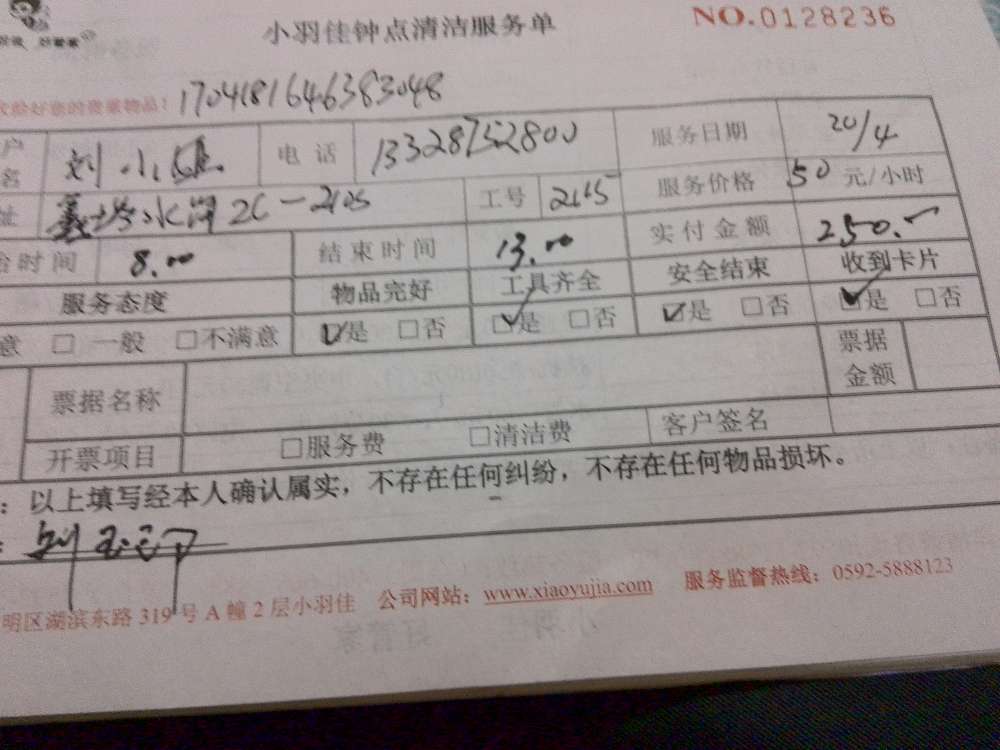 小羽佳钟点清洁服务单 NO.0128236
好管家
好您的贵重物品! 1704181646383048
户名 刘小姐 电话 13328752800 服务日期 20/4
址 2C-2105 工号 2165 服务价格 50 元/小时
时间 8.00 结束时间 13.00 实付金额 250.
服务态度 物品完好 工具齐全 安全结束 收到卡片
意 □ 一般 □不满意 ☑是 □否 ☑是 □否 ☑是 □否 ☑是 □否
票据名称 票据金额
开票项目 □服务费 □清洁费 客户签名
：以上填写经本人确认属实，不存在任何纠纷，不存在任何物品损坏。
明区湖滨东路 319 号 A 幢 2 层小羽佳 公司网站：www.xiaoyujia.com 服务监督热线：0592-5888123